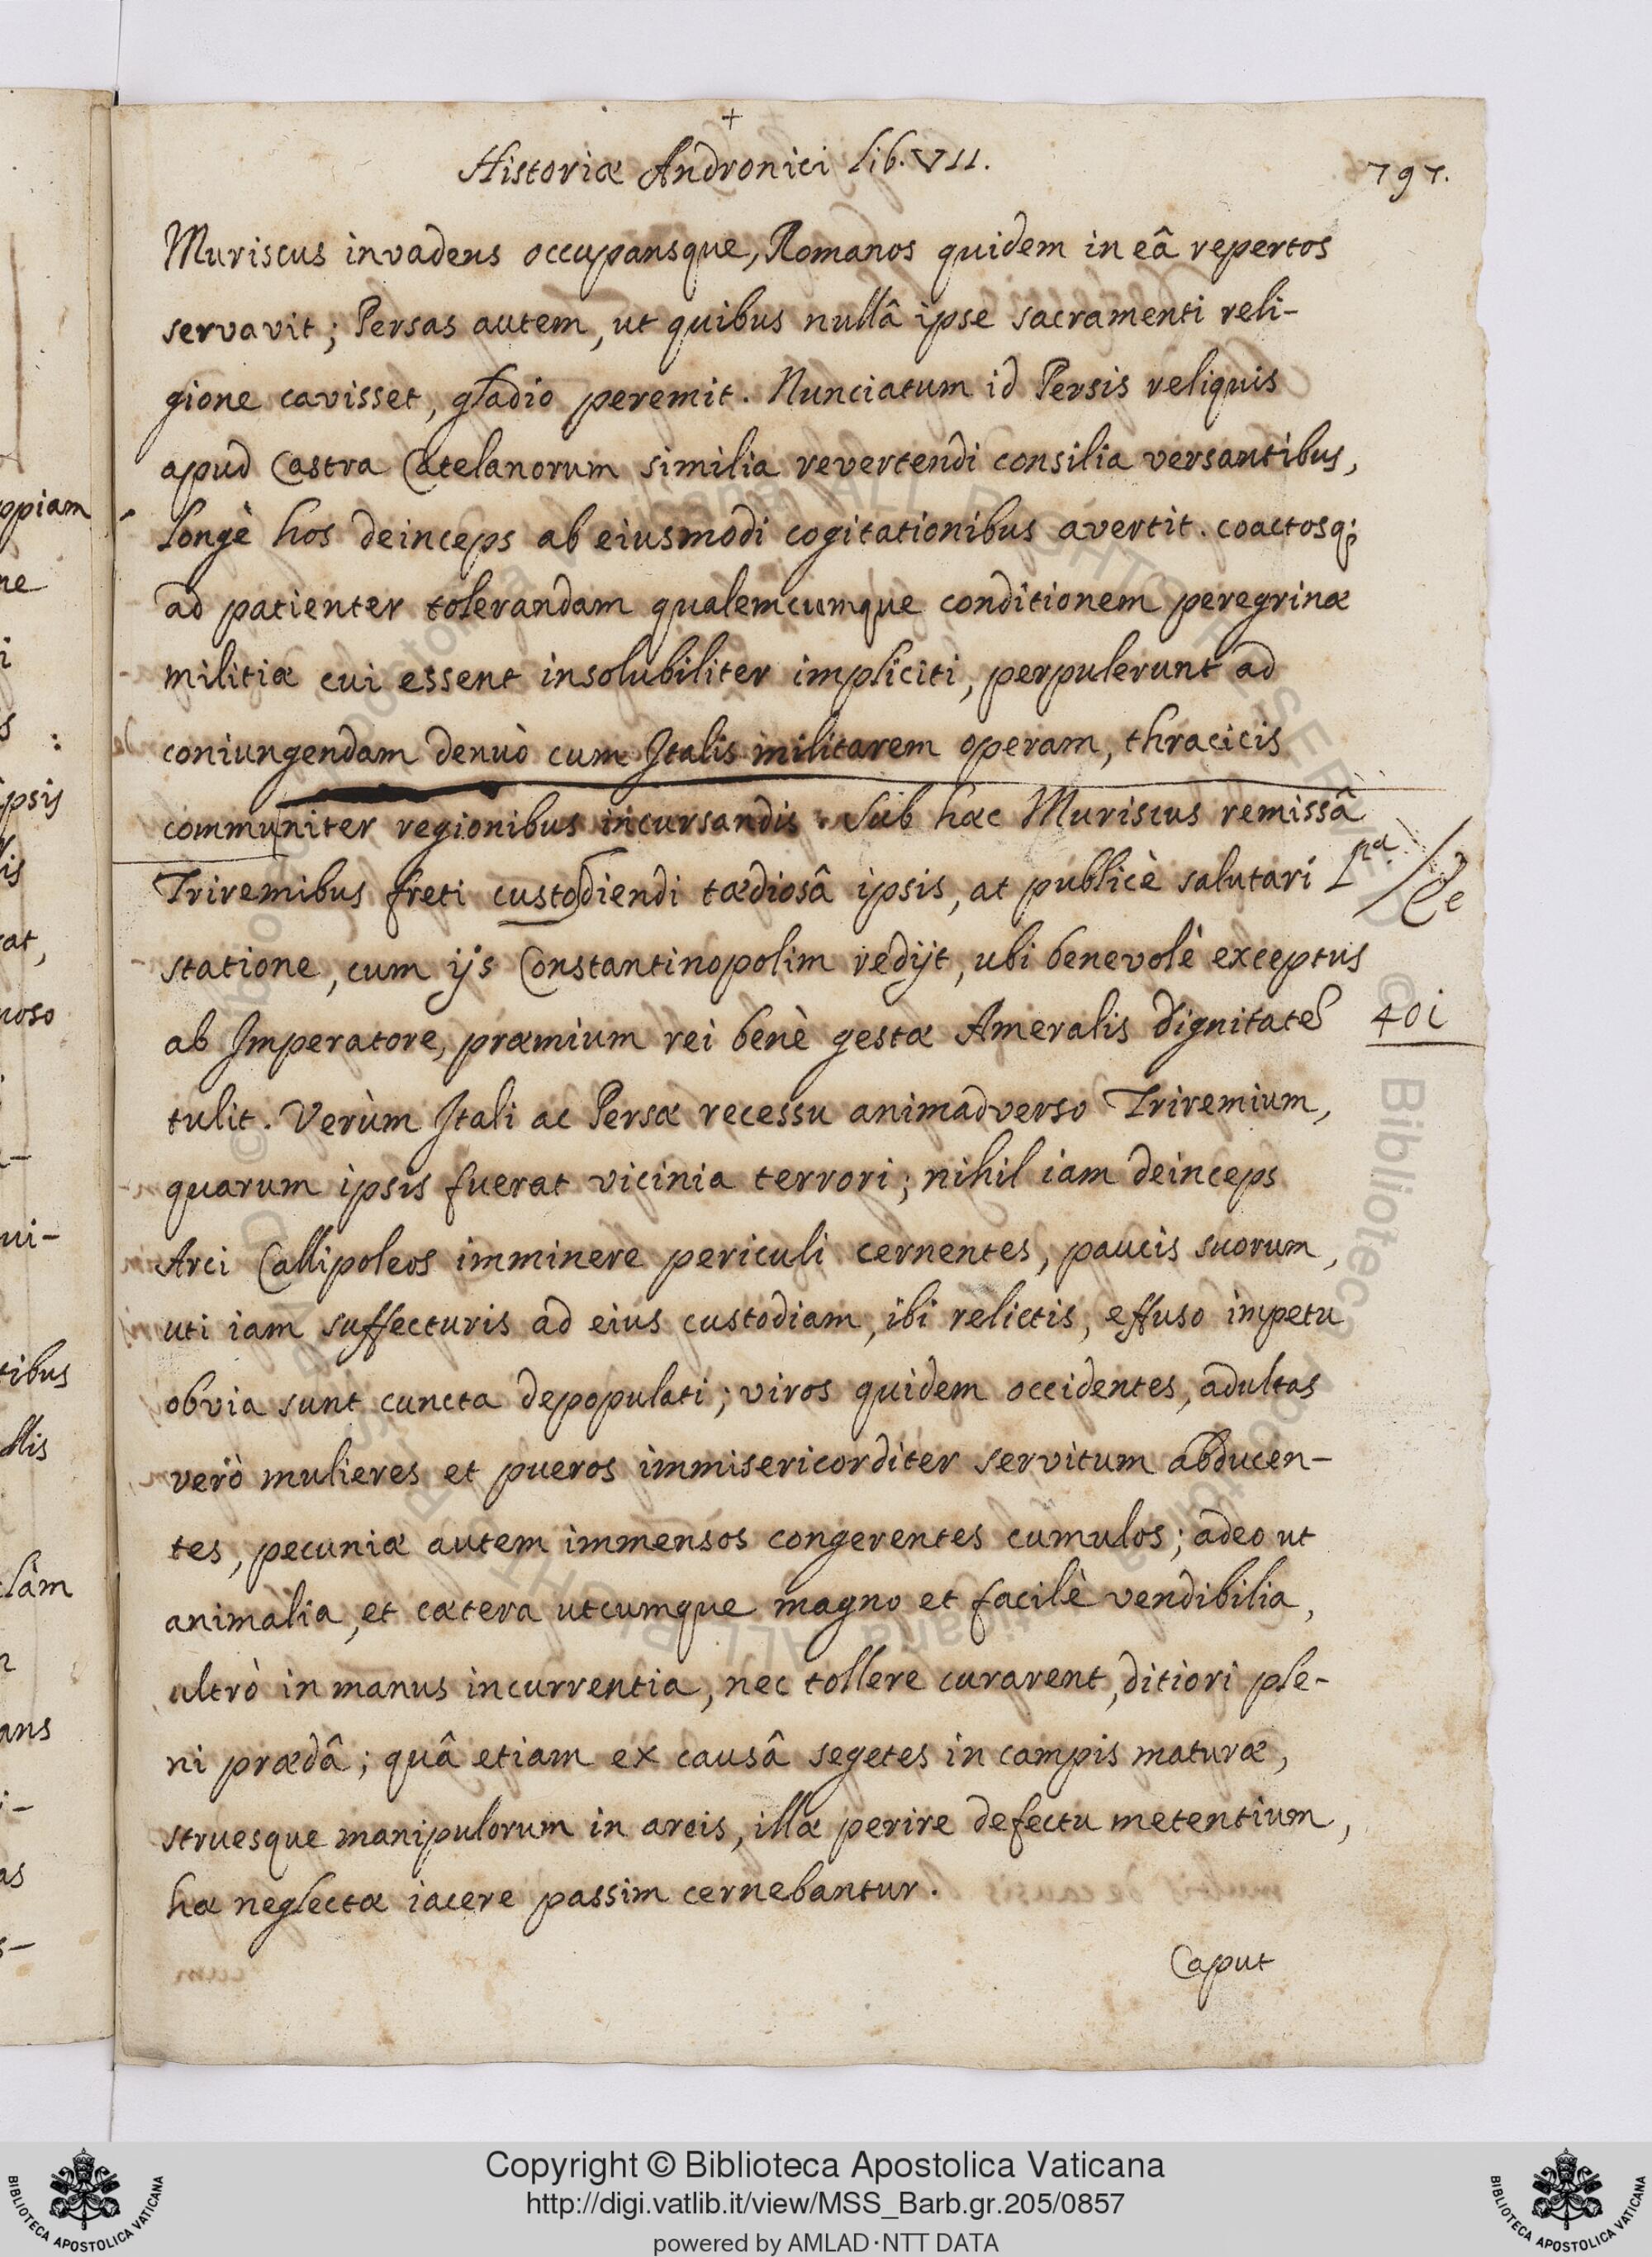 +
Historiæ Andronici Lib. VII.
797.
Muriscus invadens occupansque, Romanos quidem in eâ repertos
servavit; Persas autem, ut quibus nullâ ipse sacramenti reli-
gione cavisset, gladio peremit. Nunciatum id Persis reliquis
apud Castra Catelanorum similia revertendi consilia versantibus,
longè hos deinceps ab eiusmodi cogitationibus avertit. coactosq;
ad patienter tolerandam qualemcumque conditionem peregrinæ
militiæ cui essent insolubiliter impliciti, perpulerunt ad
coniungendam denuò cum Italis militarem operam, thracicis
communiter regionibus incursandis. Sub hæc Muriscus remissâ
Triremibus freti custodiendi tædiosâ ipsis, at publicè salutari
statione, cum ijs Constantinopolim redijt, ubi benevolè exceptus
ab Imperatore, præmium rei benè gestæ Ameralis dignitatẽ
401
tulit. Verùm Itali ac Persæ recessu animadverso Triremium,
quarum ipsis fuerat vicinia terrori; nihil iam deinceps
Arci Callipoleos imminere periculi cernentes, paucis suorum,
uti iam suffecturis ad eius custodiam, ibi relictis, effuso impetu
obvia sunt cuncta depopulati; viros quidem occidentes, adultas
verò mulieres et pueros immisericorditer servitum abducen-
tes, pecuniæ autem immensos congerentes cumulos; adeo ut
animalia, et cætera utcumque magno et facilè vendibilia,
ultrò in manus incurrentia, nec tollere curarent, ditiori ple-
ni prædâ; quâ etiam ex causâ segetes in campis maturæ,
struesque manipulorum in areis, illæ perire defectu metentium,
hæ neglectæ iacere passim cernebantur.
Caput
Copyright © Biblioteca Apostolica Vaticana
http://digi.vatlib.it/view/MSS_Barb.gr.205/0857
powered by AMLAD·NTT DATA